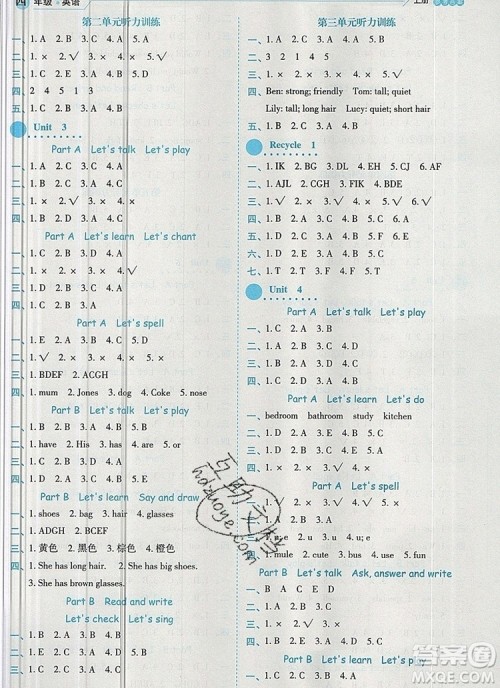 四 年级·英语
第二单元听力训练
一、1. A 2. B 3. C 4. A
二、1. C 2. A 3. C 4. B
三、1. × 2. × 3. √ 4. ×
四、2 4 5 1 3
五、1. C 2. B 3. C 4. A
Unit 3
Part A Let's talk Let's play
一、1. C 2. A 3. B 4. A
二、1. A 2. B 3. A 4. C
三、1. B 2. A 3. D 4. C
Part A Let's learn Let's chant
一、1. C 2. B 3. A 4. B
二、1. × 2. × 3. × 4. √
三、1. C 2. A 3. D 4. B
Part A Let's spell
一、1. E 2. A 3. D 4. B 5. C
二、1. √ 2. × 3. × 4. √ 5. ×
三、1. BDEF 2. ACGH
四、1. mum 2. Jones 3. dog 4. Coke 5. nose
Part B Let's talk Let's play
一、1. have 2. His 3. has 4. are
二、1. A 2. A 3. B 4. A
三、1. × 2. √ 3. × 4. ×
Part B Let's learn Say and draw
一、1. shoes 2. bag 3. hair 4. glasses
二、1. ADGH 2. BCEF
三、1. 黄色 2. 黑色 3. 棕色 4. 橙色
四、1. She has long hair. 2. She has big shoes.
3. She has brown glasses.
Part B Read and write
Let's check Let's sing
一、1. B 2. B 3. A 4. A
二、1. A 2. B 3. A 4. A
三、1. C 2. D 3. B 4. A
上册
第三单元听力训练
一、1. C 2. B 3. A 4. B
二、1. C 2. A 3. A 4. B
三、1. × 2. × 3. √ 4. √
四、Ben: strong; friendly Tom: tall; quiet
Lily: tall; long hair Lucy: quiet; short hair
五、1. B 2. C 3. A 4. B
Recycle 1
一、1. IK 2. BG 3. DL 4. EH 5. CJ 6. AF
二、1. AJL 2. CGH 3. FIK 4. BDE
三、1. √ 2. × 3. √ 4. √ 5. ×
四、1. B 2. A 3. B 4. C 5. A
五、1. D 2. A 3. E 4. B 5. C
六、1. D 2. C 3. A 4. B
七、1. T 2. F 3. F 4. T 5. T
Unit 4
Part A Let's talk Let's play
一、1. C 2. A 3. B
二、1. A 2. B 3. C 4. A
三、1. B 2. D 3. A 4. C
Part A Let's learn Let's do
一、bedroom bathroom study kitchen
二、1. C 2. B 3. A 4. C
三、1. D 2. B 3. C 4. A
四、1. × 2. × 3. √ 4. √
Part A Let's spell
一、1. √ 2. √ 3. × 4. ×
二、1. A 2. C 3. C 4. A
三、1. u; e 2. u 3. u 4. u; e
四、1. mule 2. cute 3. but 4. use
Part B Let's talk Ask, answer and write
一、B A C E D
二、1. B 2. C 3. A 4. C
三、1. A 2. B 3. B 4. A 5. B
Part B Let's learn
一、1. C 2. A 3. D 4. B
二、1. × 2. × 3. √ 4. ×
三、1. B 2. A 3. B 4. C
hdzuoye.com
MXQE.COM